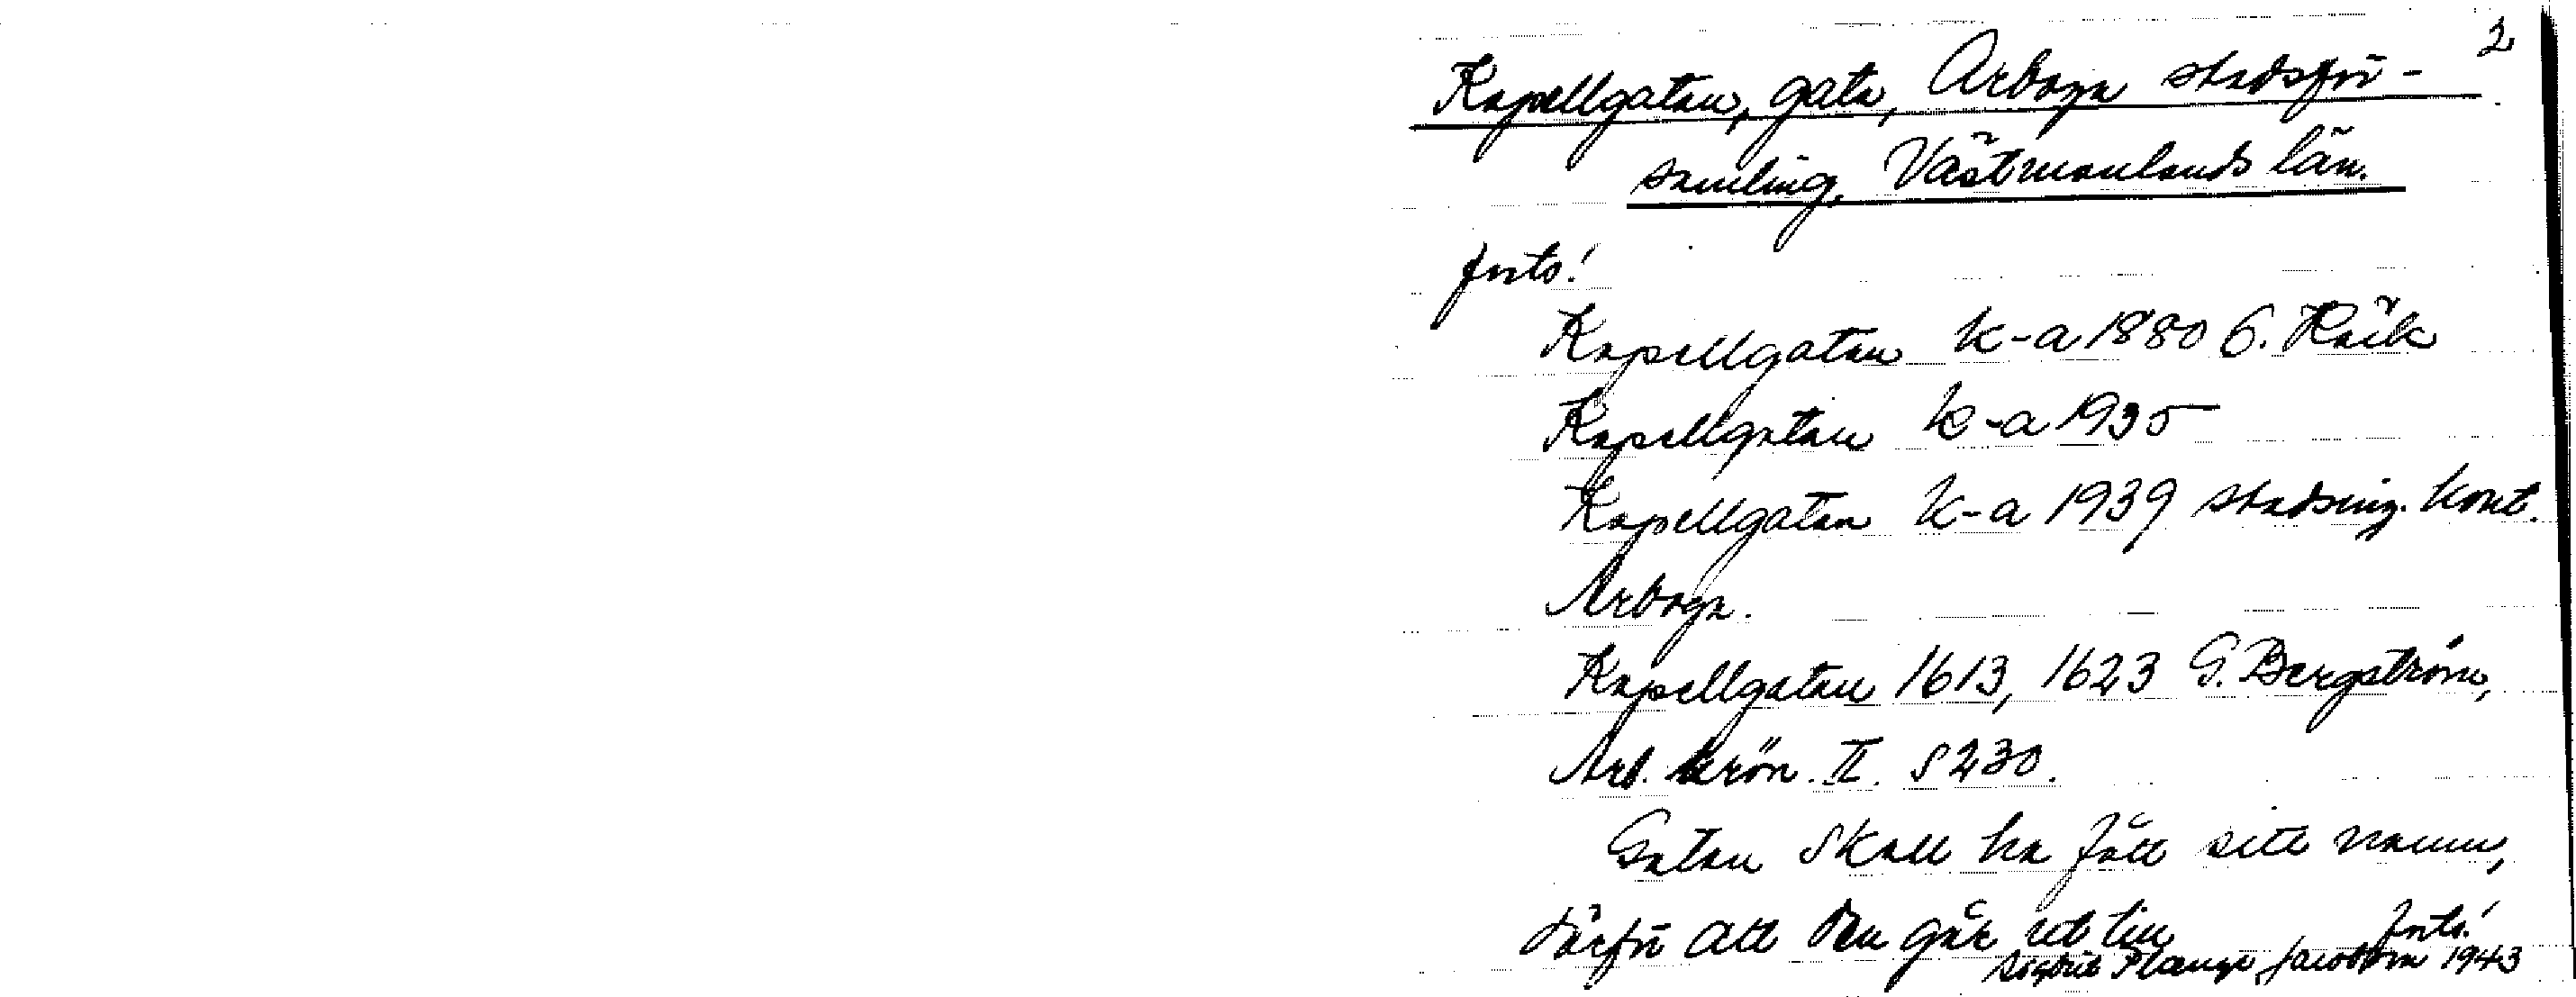 2
Kapellgatan, gata, Arboga stadsför-
samling, Västmanlands län.
forts!
Kapellgatan k-a 1880 G. Rääk
Kapellgatan k-a 1935
Kapellgatan k-a 1939 stadsing. kont.
Arboga.
Kapellgatan 1613, 1623 G. Bergström,
Arb. krön. II. S 230.
Gatan skall ha fått sitt namn,
därför att den går ut till
forts!
Plange Jacobson 1943